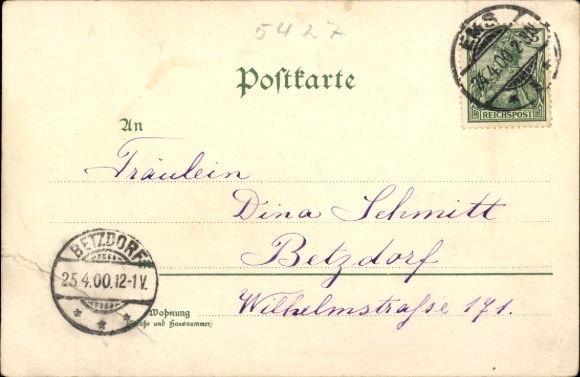 5427
Postkarte
EMS
24.4.00.2-3N
5
REICHSPOST
An
Fräulein
Dina Schmitt
Betzdorf
Wilhelmstraße 171.
BETZDORF
25.4.00.12-1V.
Wohnung
(Straße und Hausnummer)